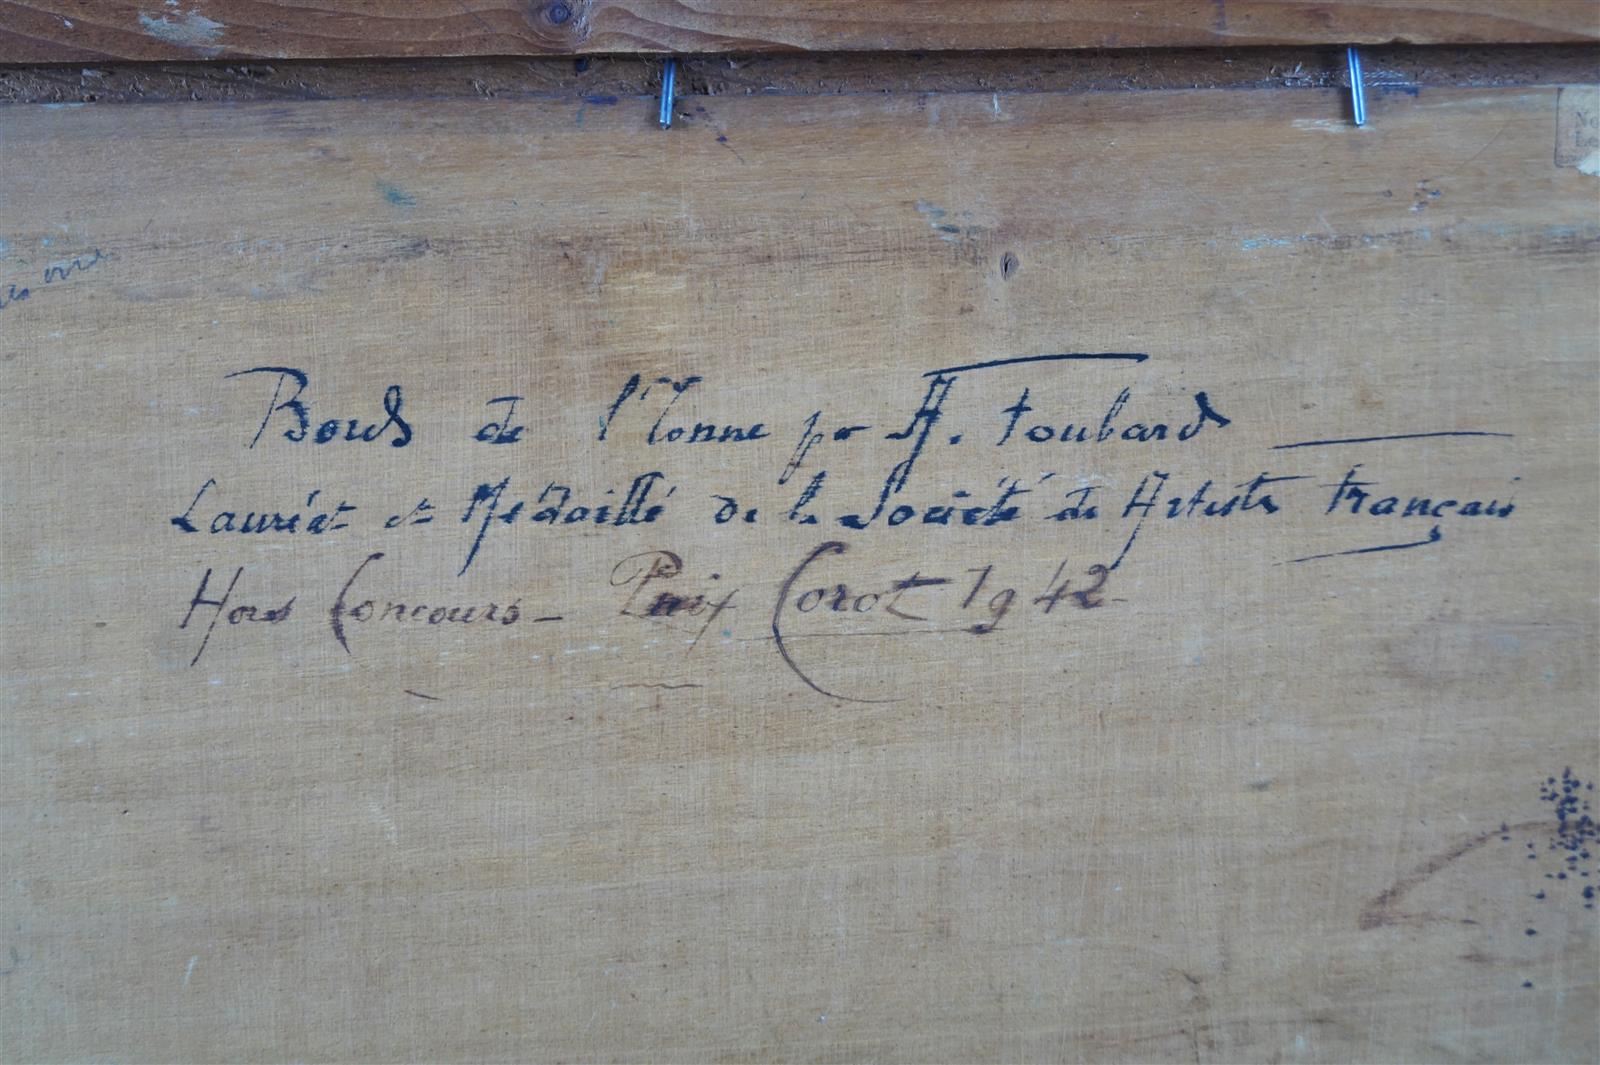 Bords de l'Yonne par A. Toubard
Lauréat et Médaillé de la Société des Artistes Français
Hors Concours - Prix Corot 1942
No
Le